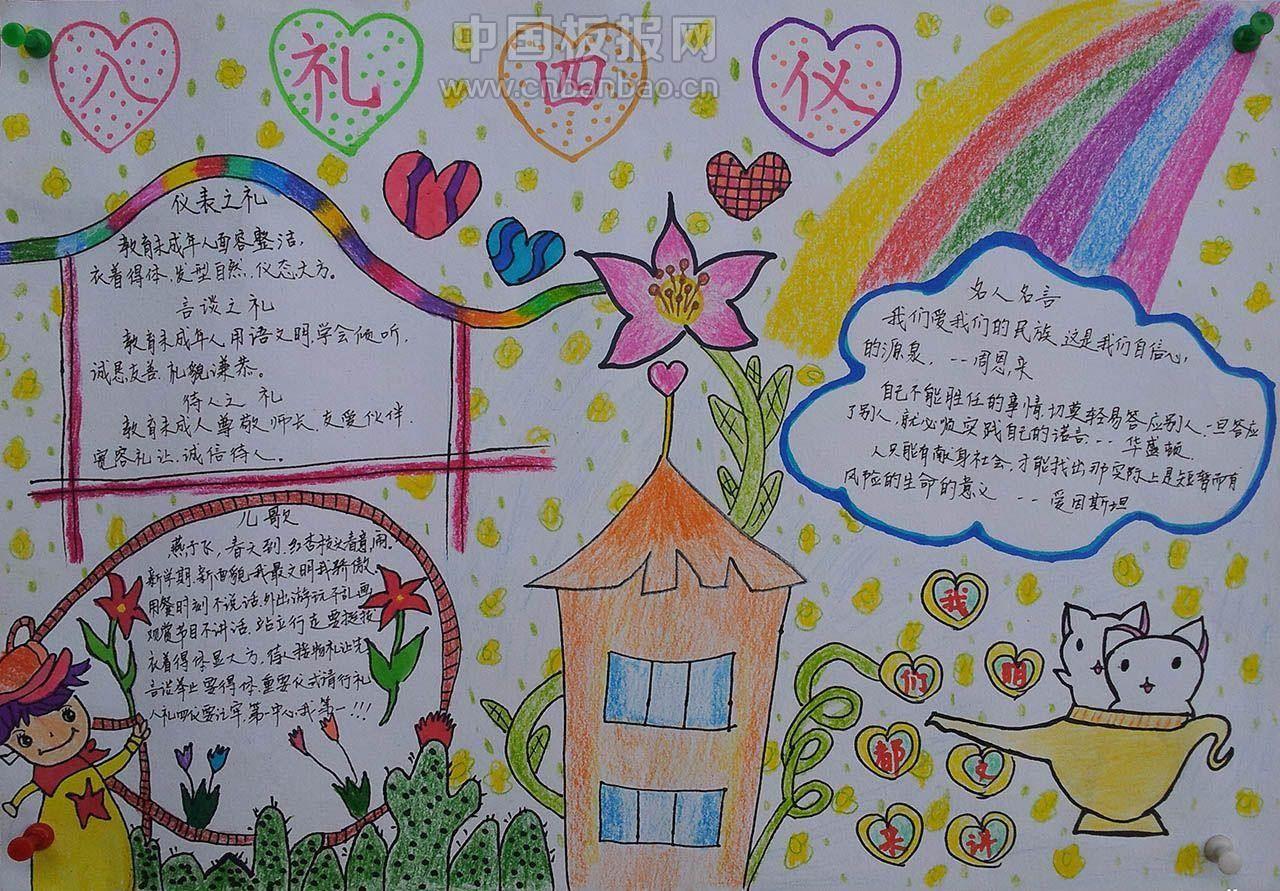 八礼四仪
中国板报网
www.cnbanbao.cn
仪表之礼
教育未成年人面容整洁,
衣着得体,发型自然,仪态大方。
言谈之礼
教育未成年人用语文明,学会倾听,
诚恳友善,礼貌谦恭。
待人之礼
教育未成人尊敬师长,友爱伙伴,
宽容礼让,诚信待人。
名人名言
我们爱我们的民族,这是我们自信心,
的源泉, --周恩来
自己不能胜任的事情,切莫轻易答应别人,一旦答应
了别人,就必须实践自己的诺言 -- 华盛顿
人只能有献身社会,才能找出那实际上是短暂而有
风险的生命的意义 -- 爱因斯坦
儿歌
燕子飞,春天到,
新学期,新面貌,我最文明我骄傲
用餐时刻不说话,外出游玩不乱画
观赏节目不讲话,站立行走要挺拔
衣着得体显大方,待人接物礼让先
言谈举止要得体,重要仪式请行礼
八礼四仪要记牢,第一中心我第一!!!
我
们 明
都 文
来 讲